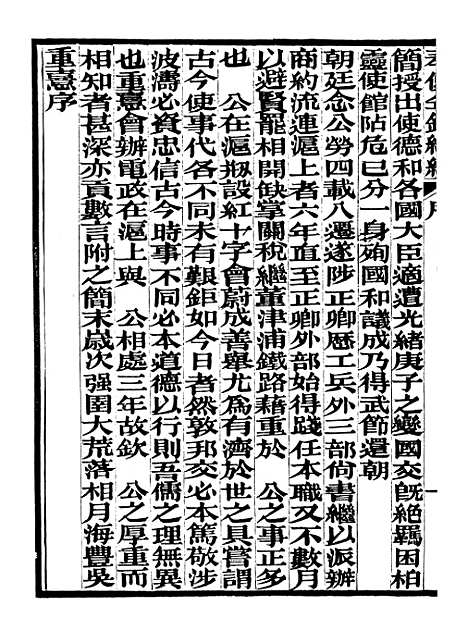 簡授出使德和各國大臣適遭光緒庚子之變國交旣絕羈困柏
靈使館阽危已分一身殉國和議成乃得武節還朝
朝廷念公勞四載八遷遂陟正卿歷工兵外三部尙書繼以派辦
商約流連滬上者六年直至正卿外部始得踐任本職又不數月
以避賢罷相開缺掌關稅繼董津浦鐵路藉重於　公之事正多
也　公在滬刱設紅十字會蔚成善舉尤為有濟於世之具嘗謂
古今使事代各不同未有艱鉅如今日者然敦邦交必本篤敬涉
波濤必資忠信古今時事不同必本道德以行則吾儒之理無異
也重憙會辦電政在滬上與　公相處三年故欽　公之厚重而
相知者甚深亦貢數言附之簡末歲次强圉大荒落相月海豐吳
重憙序